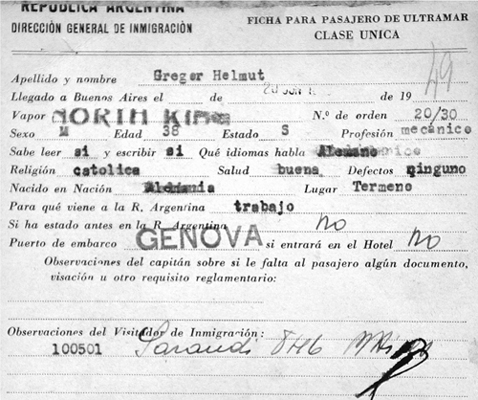 REPUBLICA ARGENTINA
DIRECCIÓN GENERAL DE INMIGRACIÓN
FICHA PARA PASAJERO DE ULTRAMAR
CLASE UNICA
Apellido y nombre Gregor Helmut
Llegado a Buenos Aires el de 20 JUN de 19 49
Vapor NORTH KING N.º de orden 20/30
Sexo M Edad 38 Estado S Profesión mecánico
Sabe leer si y escribir si Qué idiomas habla Alemano
Religión catolica Salud buena Defectos ninguno
Nacido en Nación Alemania Lugar Termeno
Para qué viene a la R. Argentina trabajo
Si ha estado antes en la R. Argentina No
Puerto de embarco GENOVA si entrará en el Hotel No
Observaciones del capitán sobre si le falta al pasajero algún documento,
visación u otro requisito reglamentario:
Observaciones del Visitador de Inmigración:
100501 Sarandi 846